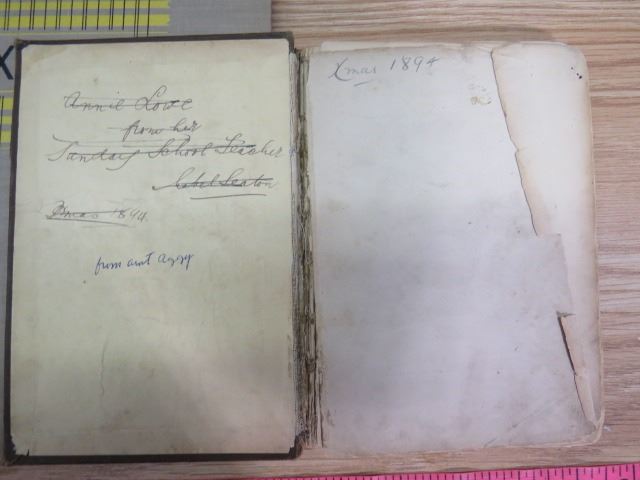 Annie Lowe
from her
Sunday School Teacher
Mabel Seaton
Xmas 1894
from aunt aggy
Xmas 1894